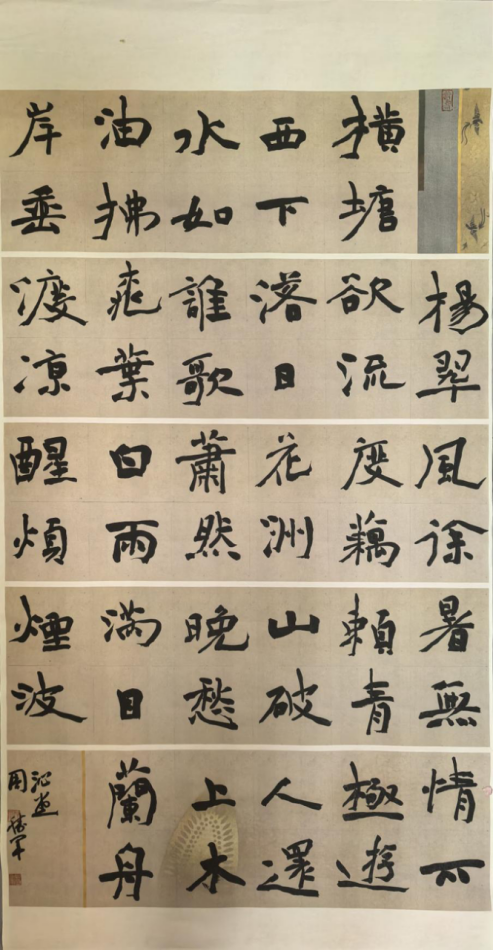 橫塘
西下
水如
油拂
岸垂
楊翠
欲流
落日
誰歌
桃葉
渡凉
風徐
度藕
花洲
蕭然
白雨
醒煩
暑無
賴青
山破
晚愁
滿目
煙波
情不
極遊
人還
上木
蘭舟
周